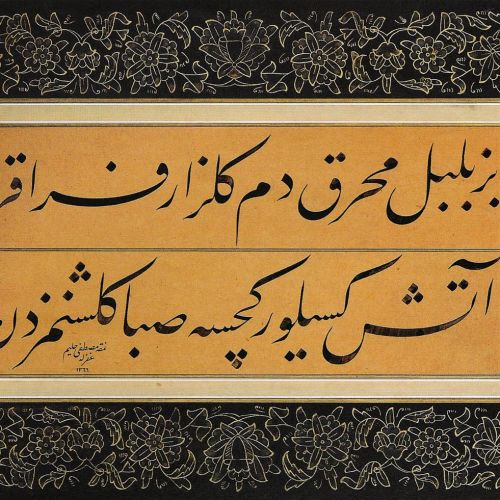 بز بلبل محرق دم کلزار فراقز
آتش کسیلور کچسه صبا کلشنمزدن
نمقه مصطفى حليم
غفرله
١٣٦٦